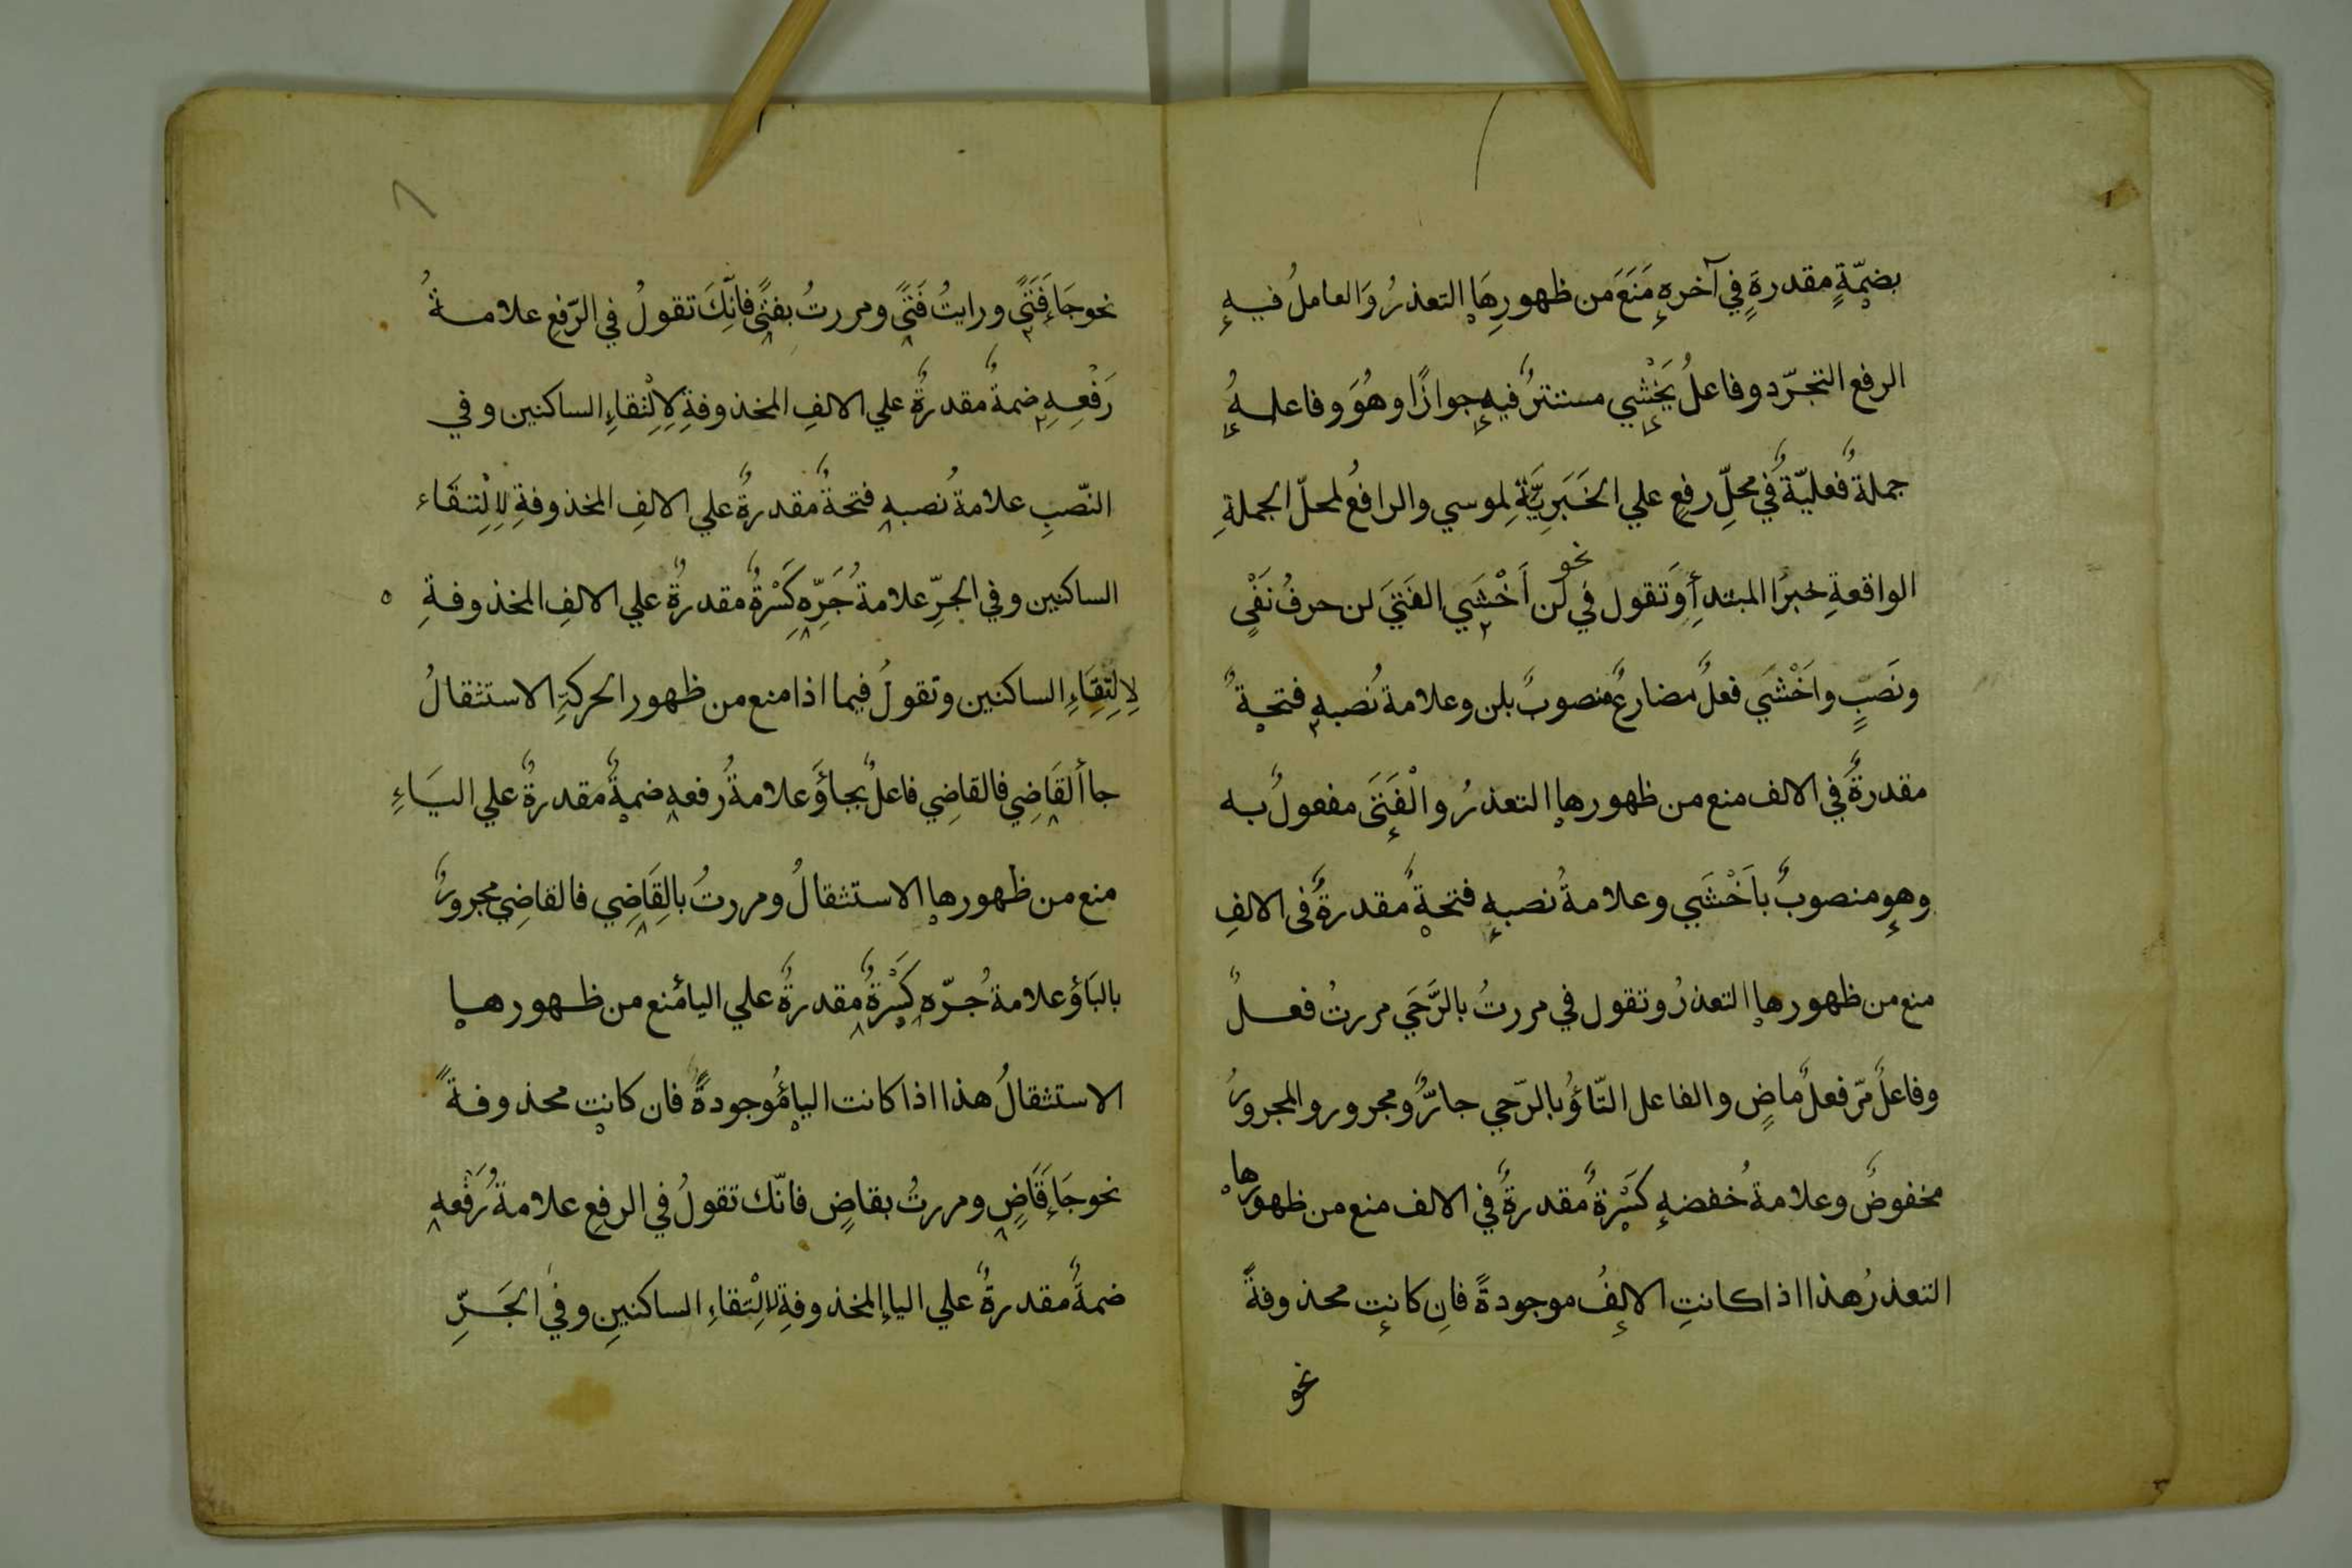 بضمّةٍ مقدرةٍ في آخرهِ مَنَعَ من ظهورِهَا التعذرُ وَالعاملُ فيهِ
الرفع التجرّد وفاعلُ يَخْشي مستترٌ فيهِ جوازًا وهُوَ وفاعلهُ
جملةٌ فعليّةٌ في محلِّ رفعٍ علي الخَبَرِيَّةِ لموسي والرافعُ لمحلّ الجملةِ
الواقعةِ خبرًا المبتدأِ وَتقول في نحو لن أَخْشَي الفَتَيَ لن حرفُ نَفْيٍ
ونَصَبٍ واَخْشَي فعلٌ مضارعٌ منصوبٌ بلن وعلامةُ نصبهِ فتحةٌ
مقدرةٌ في الالف منع من ظهورها التعذرُ والْفَتَى مفعولٌ به
وهو منصوبٌ باَخْشَي وعلامةُ نصبهِ فتحةٌ مقدرةٌ في الالفِ
منع من ظهورها التعذرُ وتقول في مررتُ بالرَّحَي مررتُ فعلٌ
وفاعلٌ مَرّ فعلٌ ماضٍ والفاعل التّاؤُ بالرّحي جارٌّ ومجرور والمجرورُ
مخفوضٌ وعلامةُ خفضهِ كَسْرةٌ مقدرةٌ في الالف منع من ظهورها
التعذرُ هذا اذا كانتِ الالفُ موجودةً فانِ كانت محذوفةً
نحو
نحو جَاءَ فَتَيً ورايتُ فَتيً ومررتُ بفتيً فانِّكَ تقولُ في الرّفعِ علامةُ
رَفْعِهِ ضمةٌ مقدرةٌ علي الالفِ المخذوفةِ لِالِْتقاءِ الساكنين وفي
النّصبِ علامةُ نصبهِ فتحةٌ مقدرةٌ علي الالفِ المخذوفةِ لِالِْتقَاء
الساكنين وفي الجرِّ علامةُ جَرِّهِ كَسْرةٌ مقدرةٌ علي الالفِ المخذوفةِ
لِالِتِقَاءِ الساكنين وتقولُ فيما اذا منع من ظهور الحركةِ الاستثقالُ
جاأ القَاضِي فالقاضِي فاعلٌ بجاؤَ علامةُ رفعهِ ضمةٌ مقدرةٌ علي اليَاءِ
منع من ظهورها الاستثقالُ ومررتُ بالقَاضِي فالقاضِي مجرورٌ
بالبَاؤ علامةُ جرّهِ كَسْرةٌ مقدرةٌ علي اليأ منع من ظهورها
الاستثقالُ هذا اذا كانت الياؤُ موجودةً فان كانت محذوفةً
نحو جَاءَ قَاضٍ ومررتُ بقاضٍ فانّك تقولُ في الرفعِ علامةُ رَفْعهِ
ضمةٌ مقدرةٌ علي الياءِ المخذوفةِ لِالِْتقاءِ الساكنينِ وفي الجَرِّ